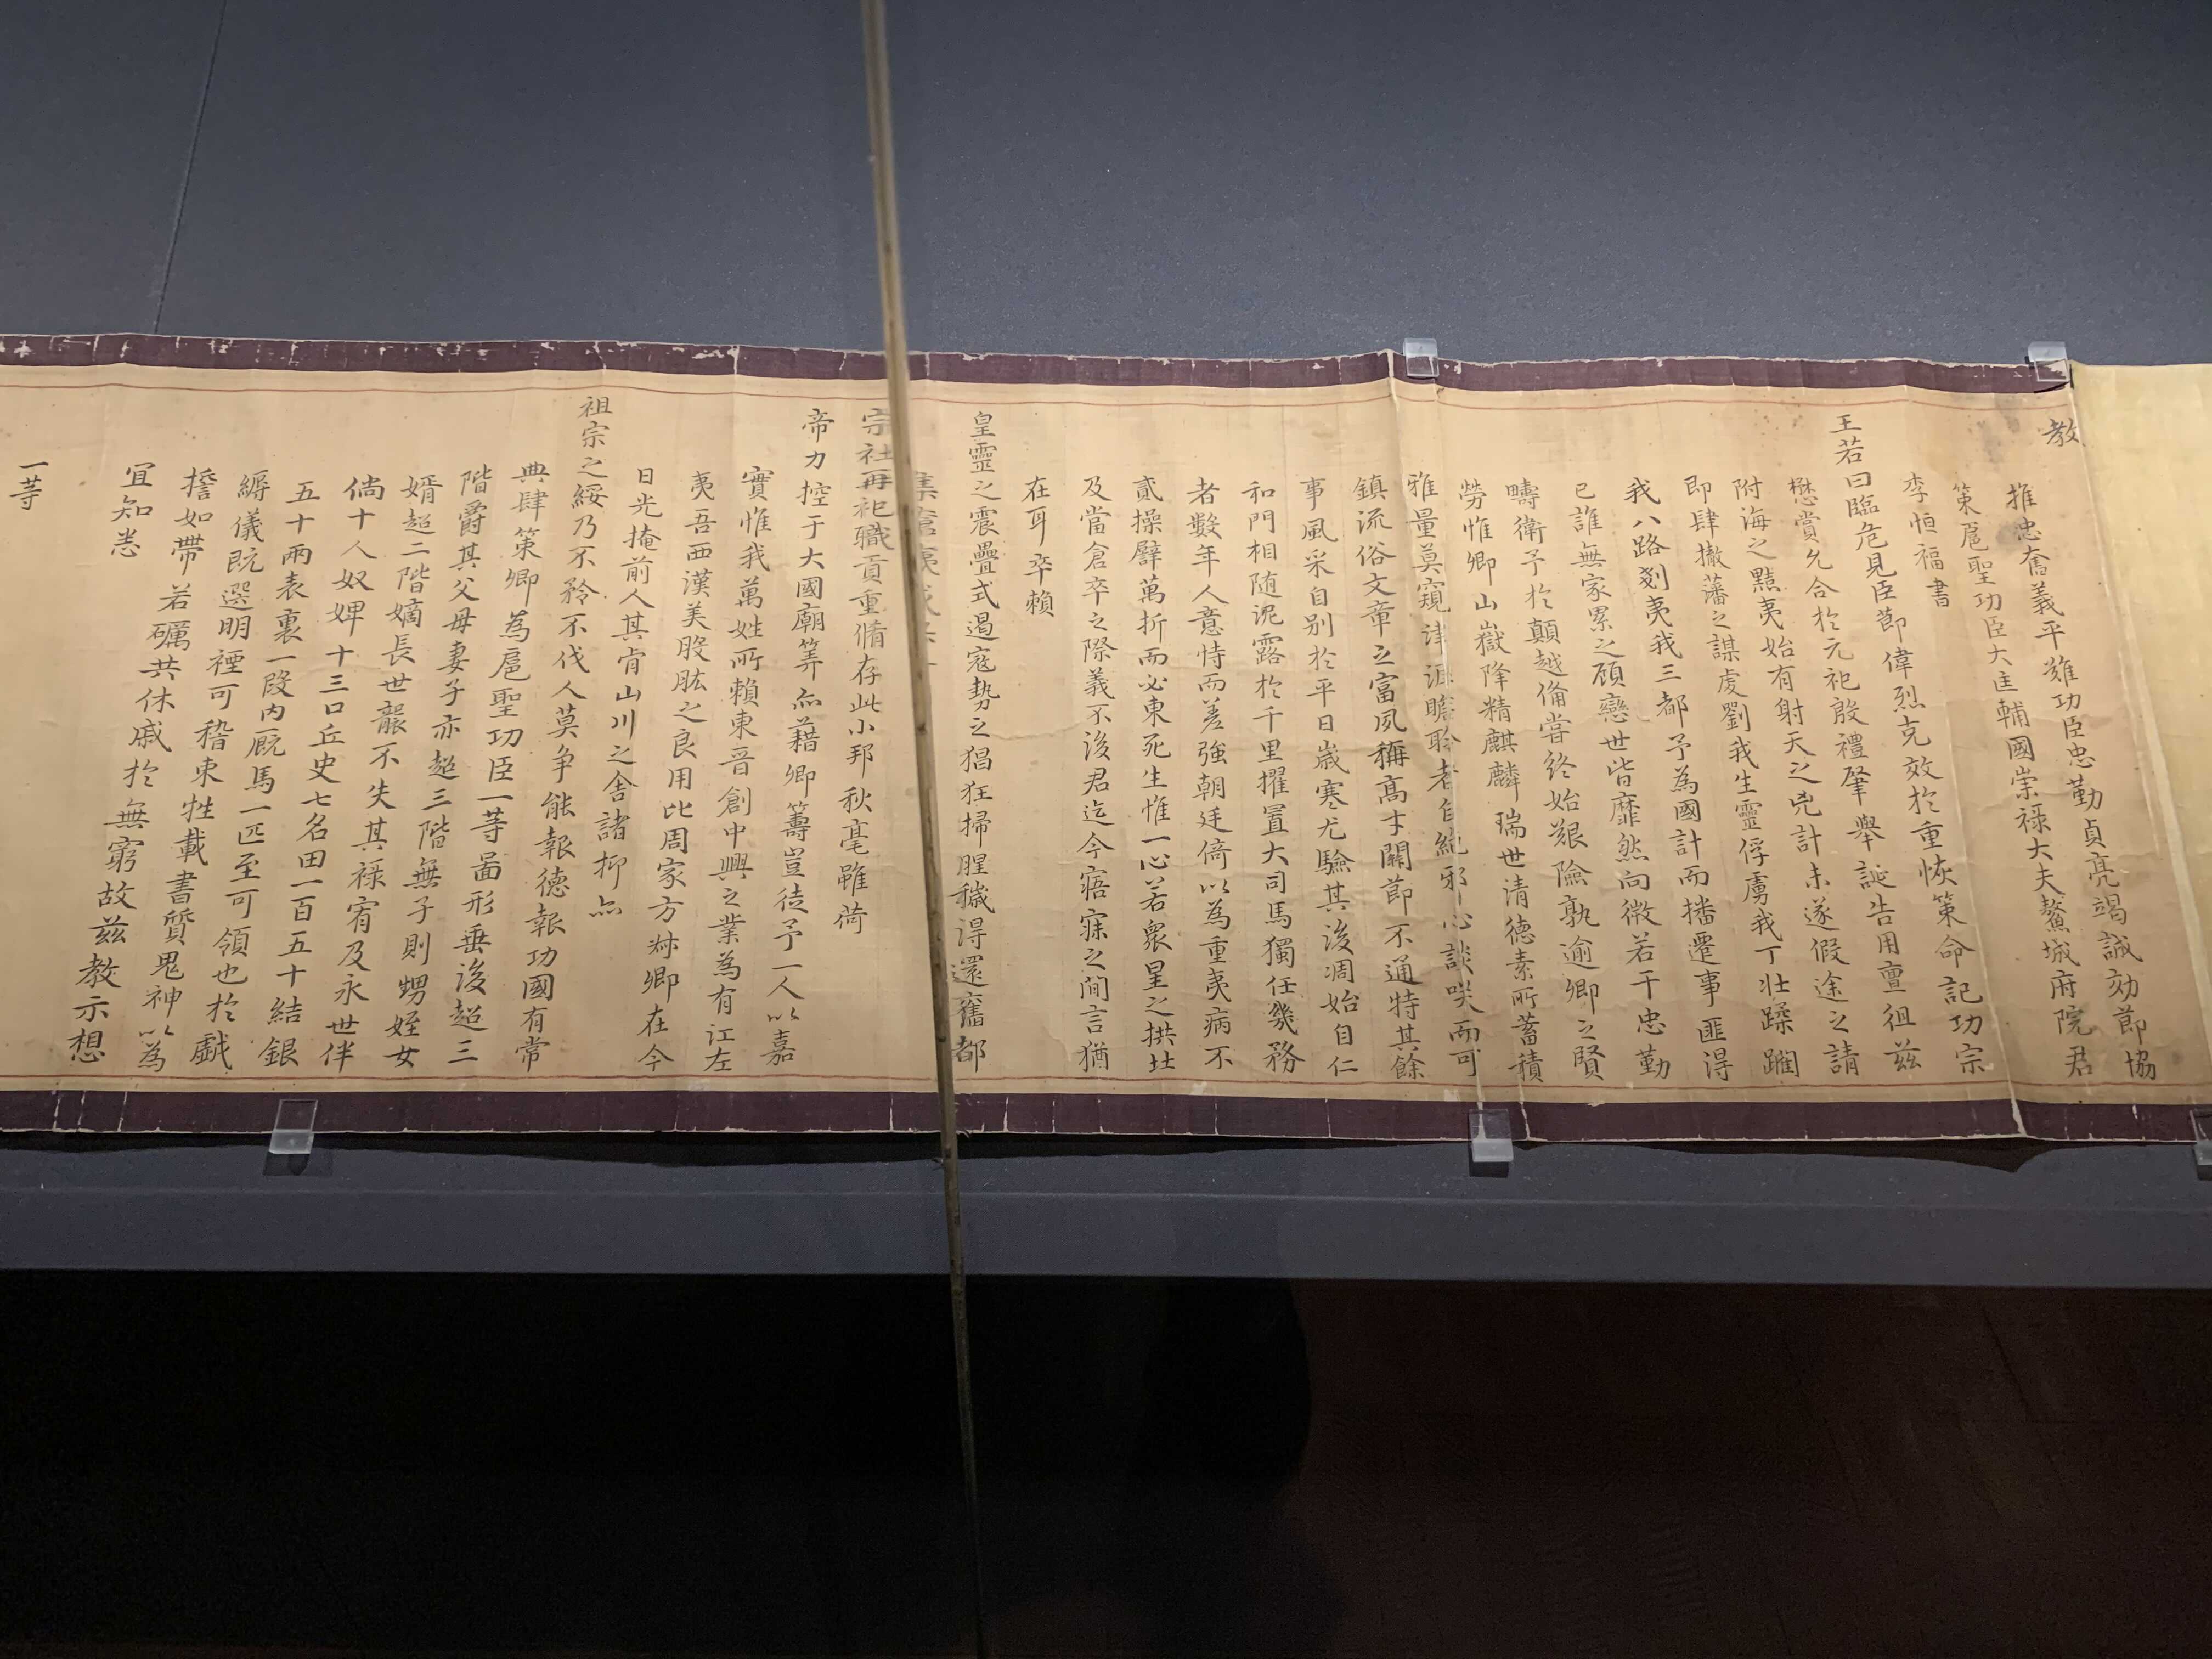 教
推忠奮義平難功臣忠勤貞亮竭誠効節協
策扈聖功臣大匡輔國崇祿大夫鰲城府院君
李恒福書
王若曰臨危見臣節偉烈克效於重恢策命記功宗
懋賞允合於元祀殷禮肇舉誕告用亶徂茲
附海之黠夷始有射天之兇計未遂假途之請
即肆撤藩之謀虔劉我生靈俘虜我丁壯蹂躪
我八路剗夷我三都予為國計而播遷事匪得
已誰無家累之顧戀世皆靡然向微若干忠勤
疇衛予於顛越倫嘗終始艱險孰逾卿之賢
勞惟卿山嶽降精麒麟瑞世清德素所蓄積
雅量莫窺津涯瞻聆者自絕邪心談咲而可
鎮流俗文章之富夙稱高才關節不通特其餘
事風采自別於平日歲寒尤驗其後凋始自仁
和門相随泥露於千里擢置大司馬獨任幾務
者數年人意恃而差強朝廷倚以為重夷病不
貳操譬萬折而必東死生惟一心若衆星之拱北
及當倉卒之際義不後君迄今寤寐之間言猶
在耳卒賴
皇靈之震疊式遏寇勢之猖狂掃腥穢淂還舊都
宗社再祀職貢重脩存此小邦秋毫雖荷
帝力控于大國廟筭亦藉卿籌豈徒予一人以嘉
實惟我萬姓所賴東晉創中興之業為有江左
夷吾西漢美股肱之良用比周家方叔卿在今
日光掩前人其肯山川之舍諸抑亦
祖宗之綏乃不矜不伐人莫争能報德報功國有常
典肆策卿為扈聖功臣一等啚形垂後超三
階爵其父母妻子亦超三階無子則甥姪女
婿超二階嫡長世襲不失其祿宥及永世伴
倘十人奴婢十三口丘史七名田一百五十結銀
五十兩表裏一段內厩馬一匹至可領也於戱
縟儀既選明禋可稽束牲載書質鬼神以為
誓如帶若礪共休戚於無窮故茲教示想
宜知悉
一等